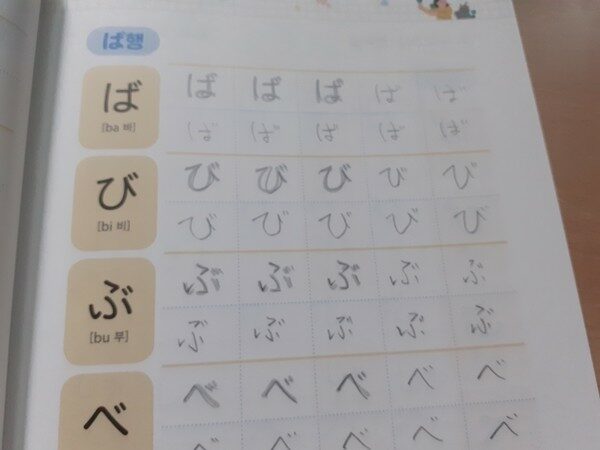 ば행
ば ば ば ば ば ば
[ba 바] ば ば ば ば ば
び び び び び び
[bi 비] び び び び び
ぶ ぶ ぶ ぶ ぶ ぶ
[bu 부] ぶ ぶ ぶ ぶ ぶ
べ べ べ べ べ べ
べ べ べ べ べ